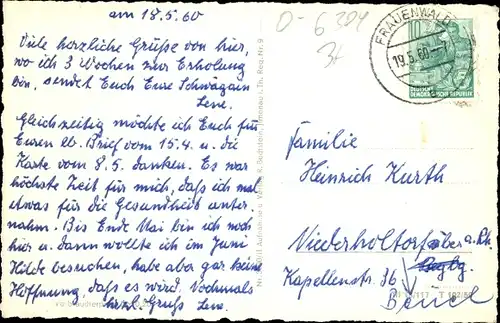 am 18.5.60
Viele herzliche Grüße von hier,
wo ich 3 Wochen zur Erholung
bin, sendet Euch Eure Schwägerin
Lene.
Gleichzeitig möchte ich Euch für
Euren lb. Brief vom 15.4. u. die
Karte vom 8.5. danken. Es war
höchste Zeit für mich, daß ich mal
etwas für die Gesundheit unter-
nahm. Bis Ende Mai bin ich noch
hier u. dann wollte ich im Juni
Hilde besuchen, habe aber gar keine
Hoffnung, daß es wird. Nochmals
herzl. Gruß Lene.
FRAUENWALD
19.5.60
DEUTSCHE
DEMOKRATISCHE REPUBLIK
Familie
Heinrich Kurth
Niederholtorf über a. Rh.
Kapellenstr. 36
Beuel